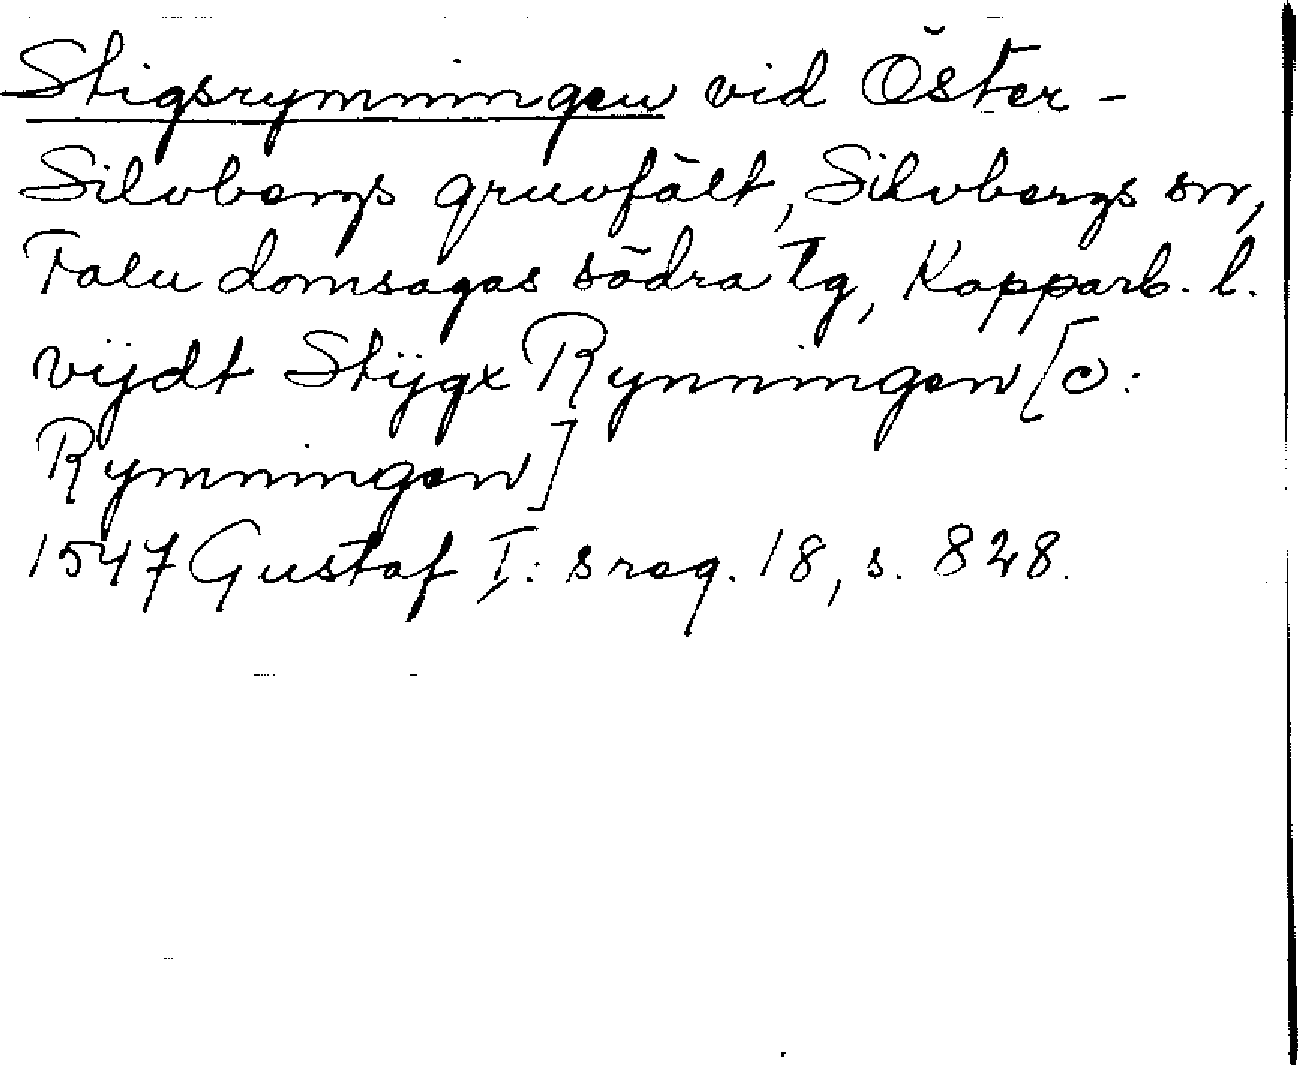 Stigsrymningen vid Öster-
Silvbergs gruvfält, Silvbergs sn,
Falu domsagas södra tg, Kopparb. l.
vijdt Stijgx Rynningen [o:
Rymningen]
1547 Gustaf I: s reg. 18, s. 828.